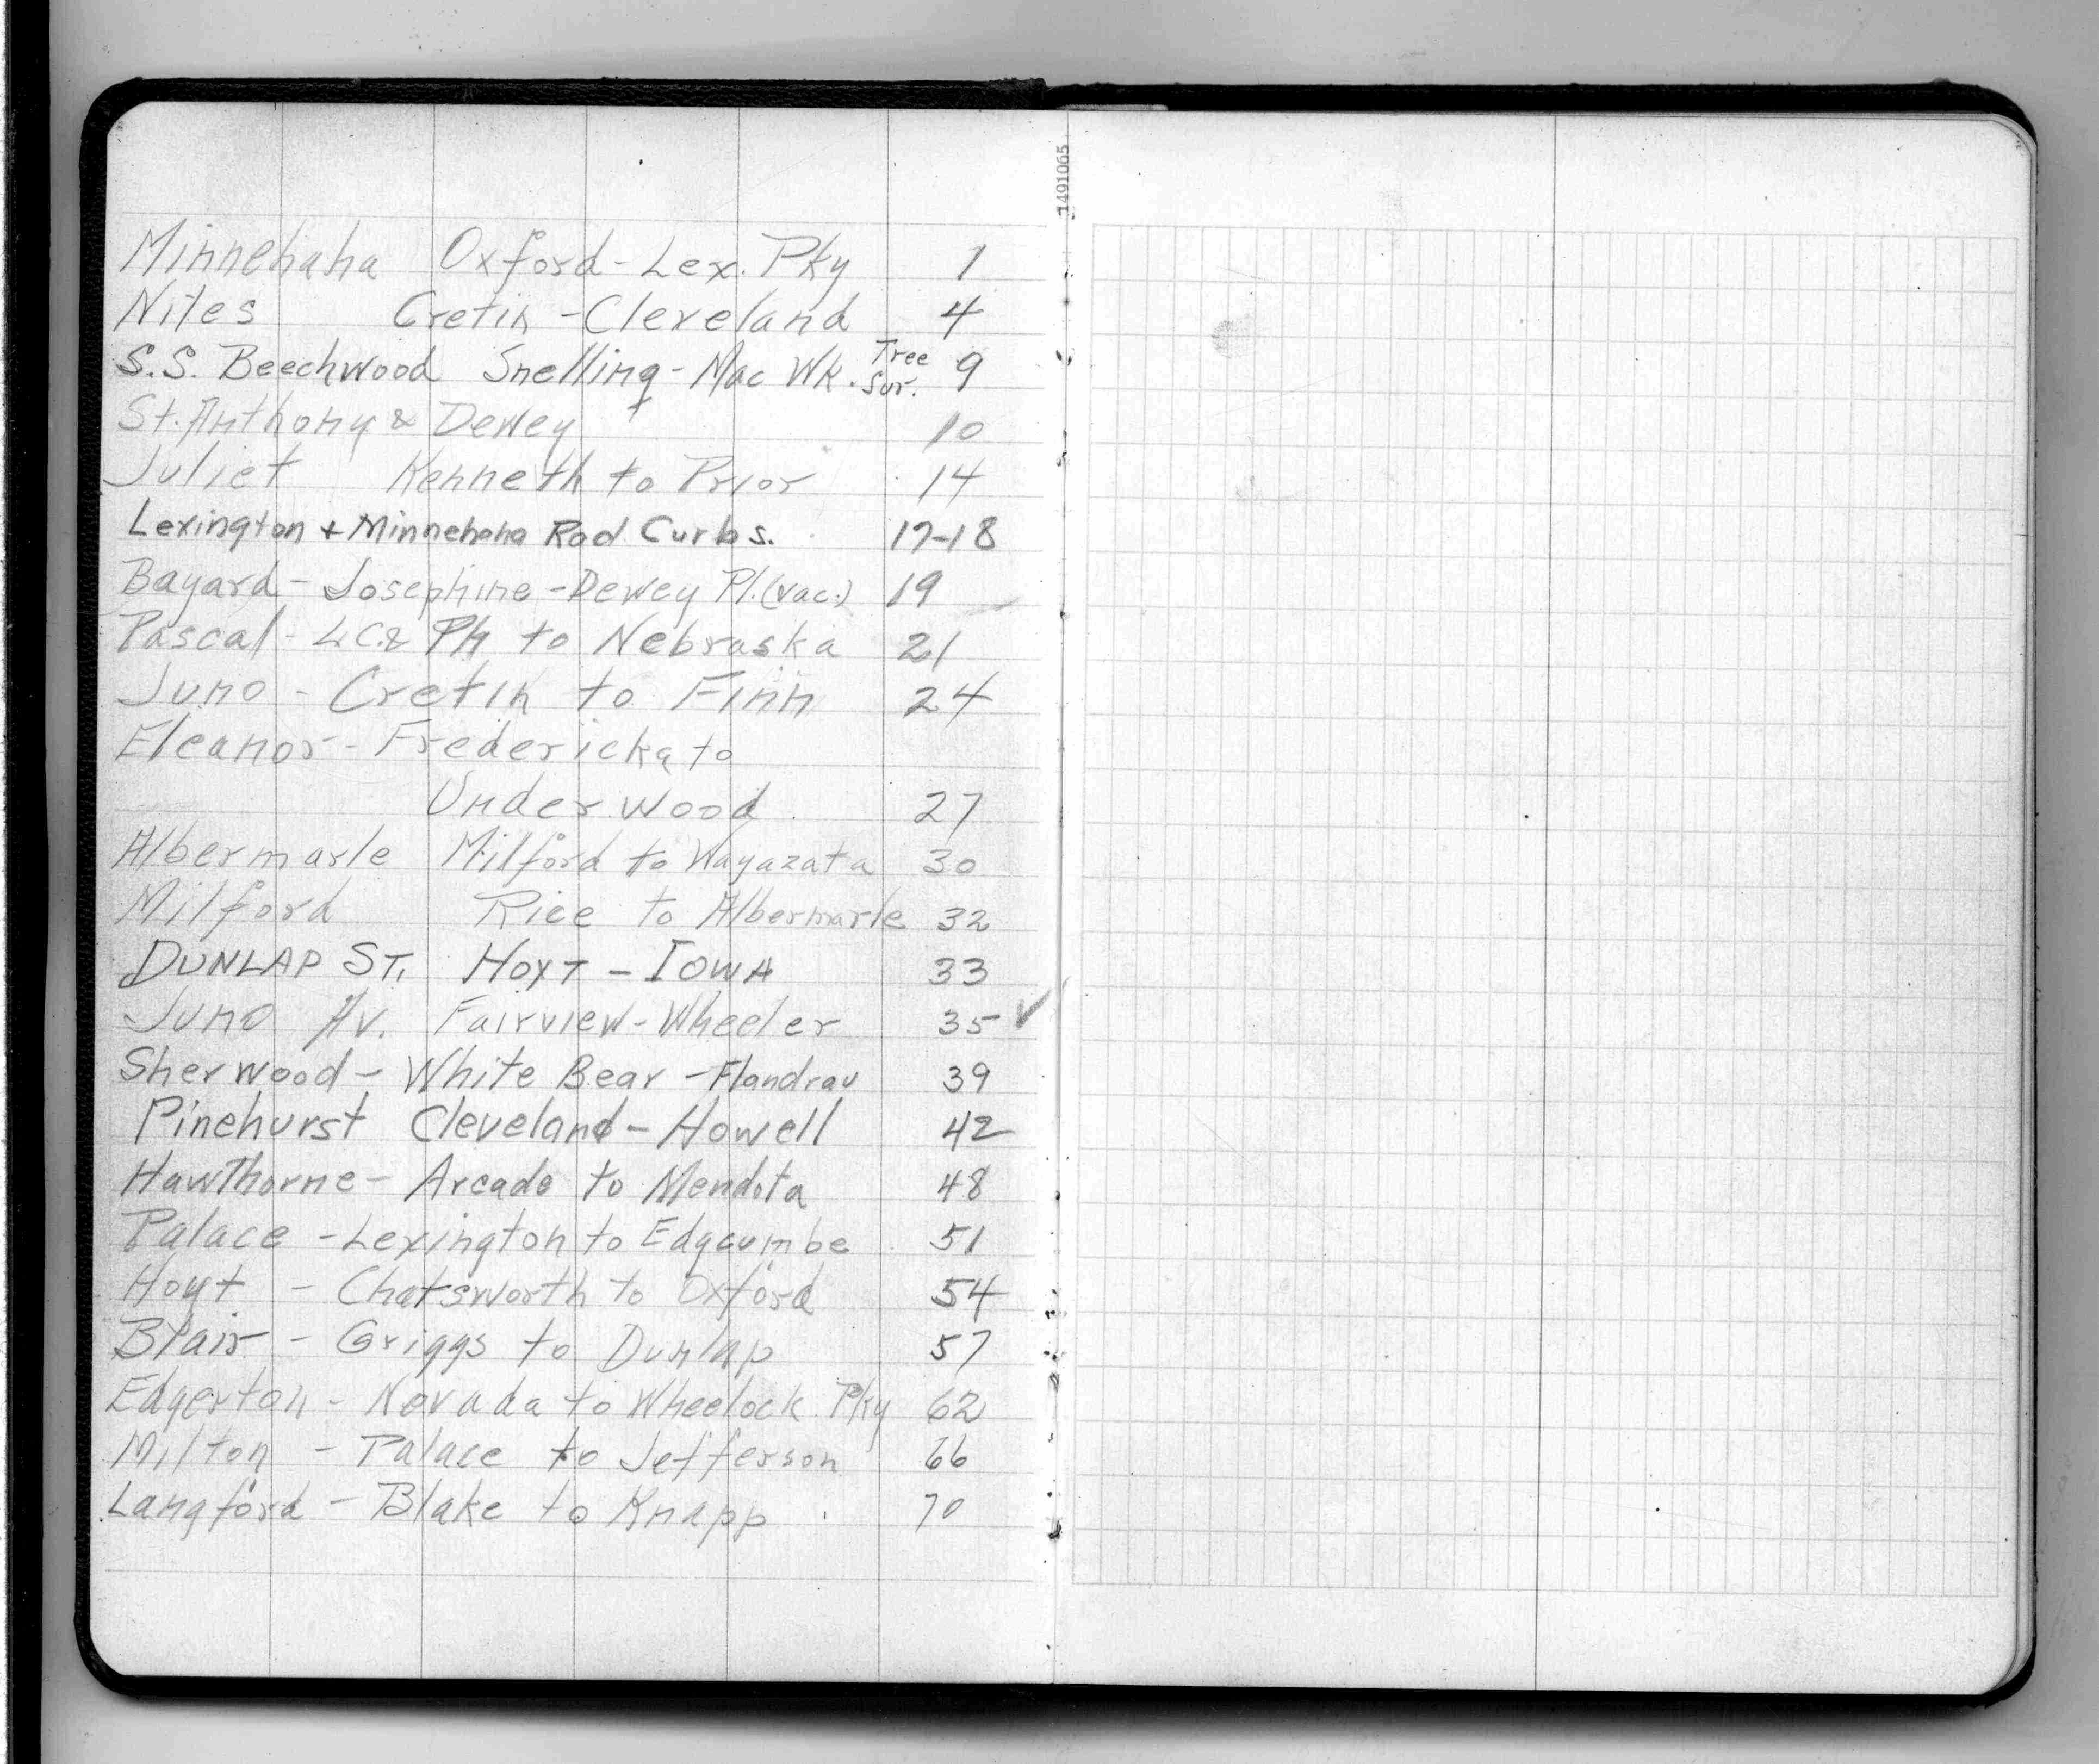 Minnehaha Oxford - Lex. Pky 1
Niles Cretin - Cleveland 4
S.S. Beechwood Snelling - Mac Wk. Tree Sur. 9
St. Anthony & Dewey 10
Juliet Kenneth to Prior 14
Lexington + Minnehaha Rad Curbs. 17-18
Bayard - Josephine - Dewey Pl. (vac.) 19
Pascal - L.C. & Pk to Nebraska 21
Juno - Cretin to Finn 24
Eleanor - Fredericka to
Underwood 27
Albermarle Milford to Wayazata 30
Milford Rice to Albermarle 32
DUNLAP ST. HOYT - IOWA 33
Juno Av. Fairview - Wheeler 35 ✓
Sherwood - White Bear - Flandrau 39
Pinehurst Cleveland - Howell 42
Hawthorne - Arcade to Mendota 48
Palace - Lexington to Edgcumbe 51
Hoyt - Chatsworth to Oxford 54
Blair - Griggs to Dunlap 57
Edgerton - Nevada to Wheelock Pky 62
Milton - Palace to Jefferson 66
Langford - Blake to Knapp 70
1491065